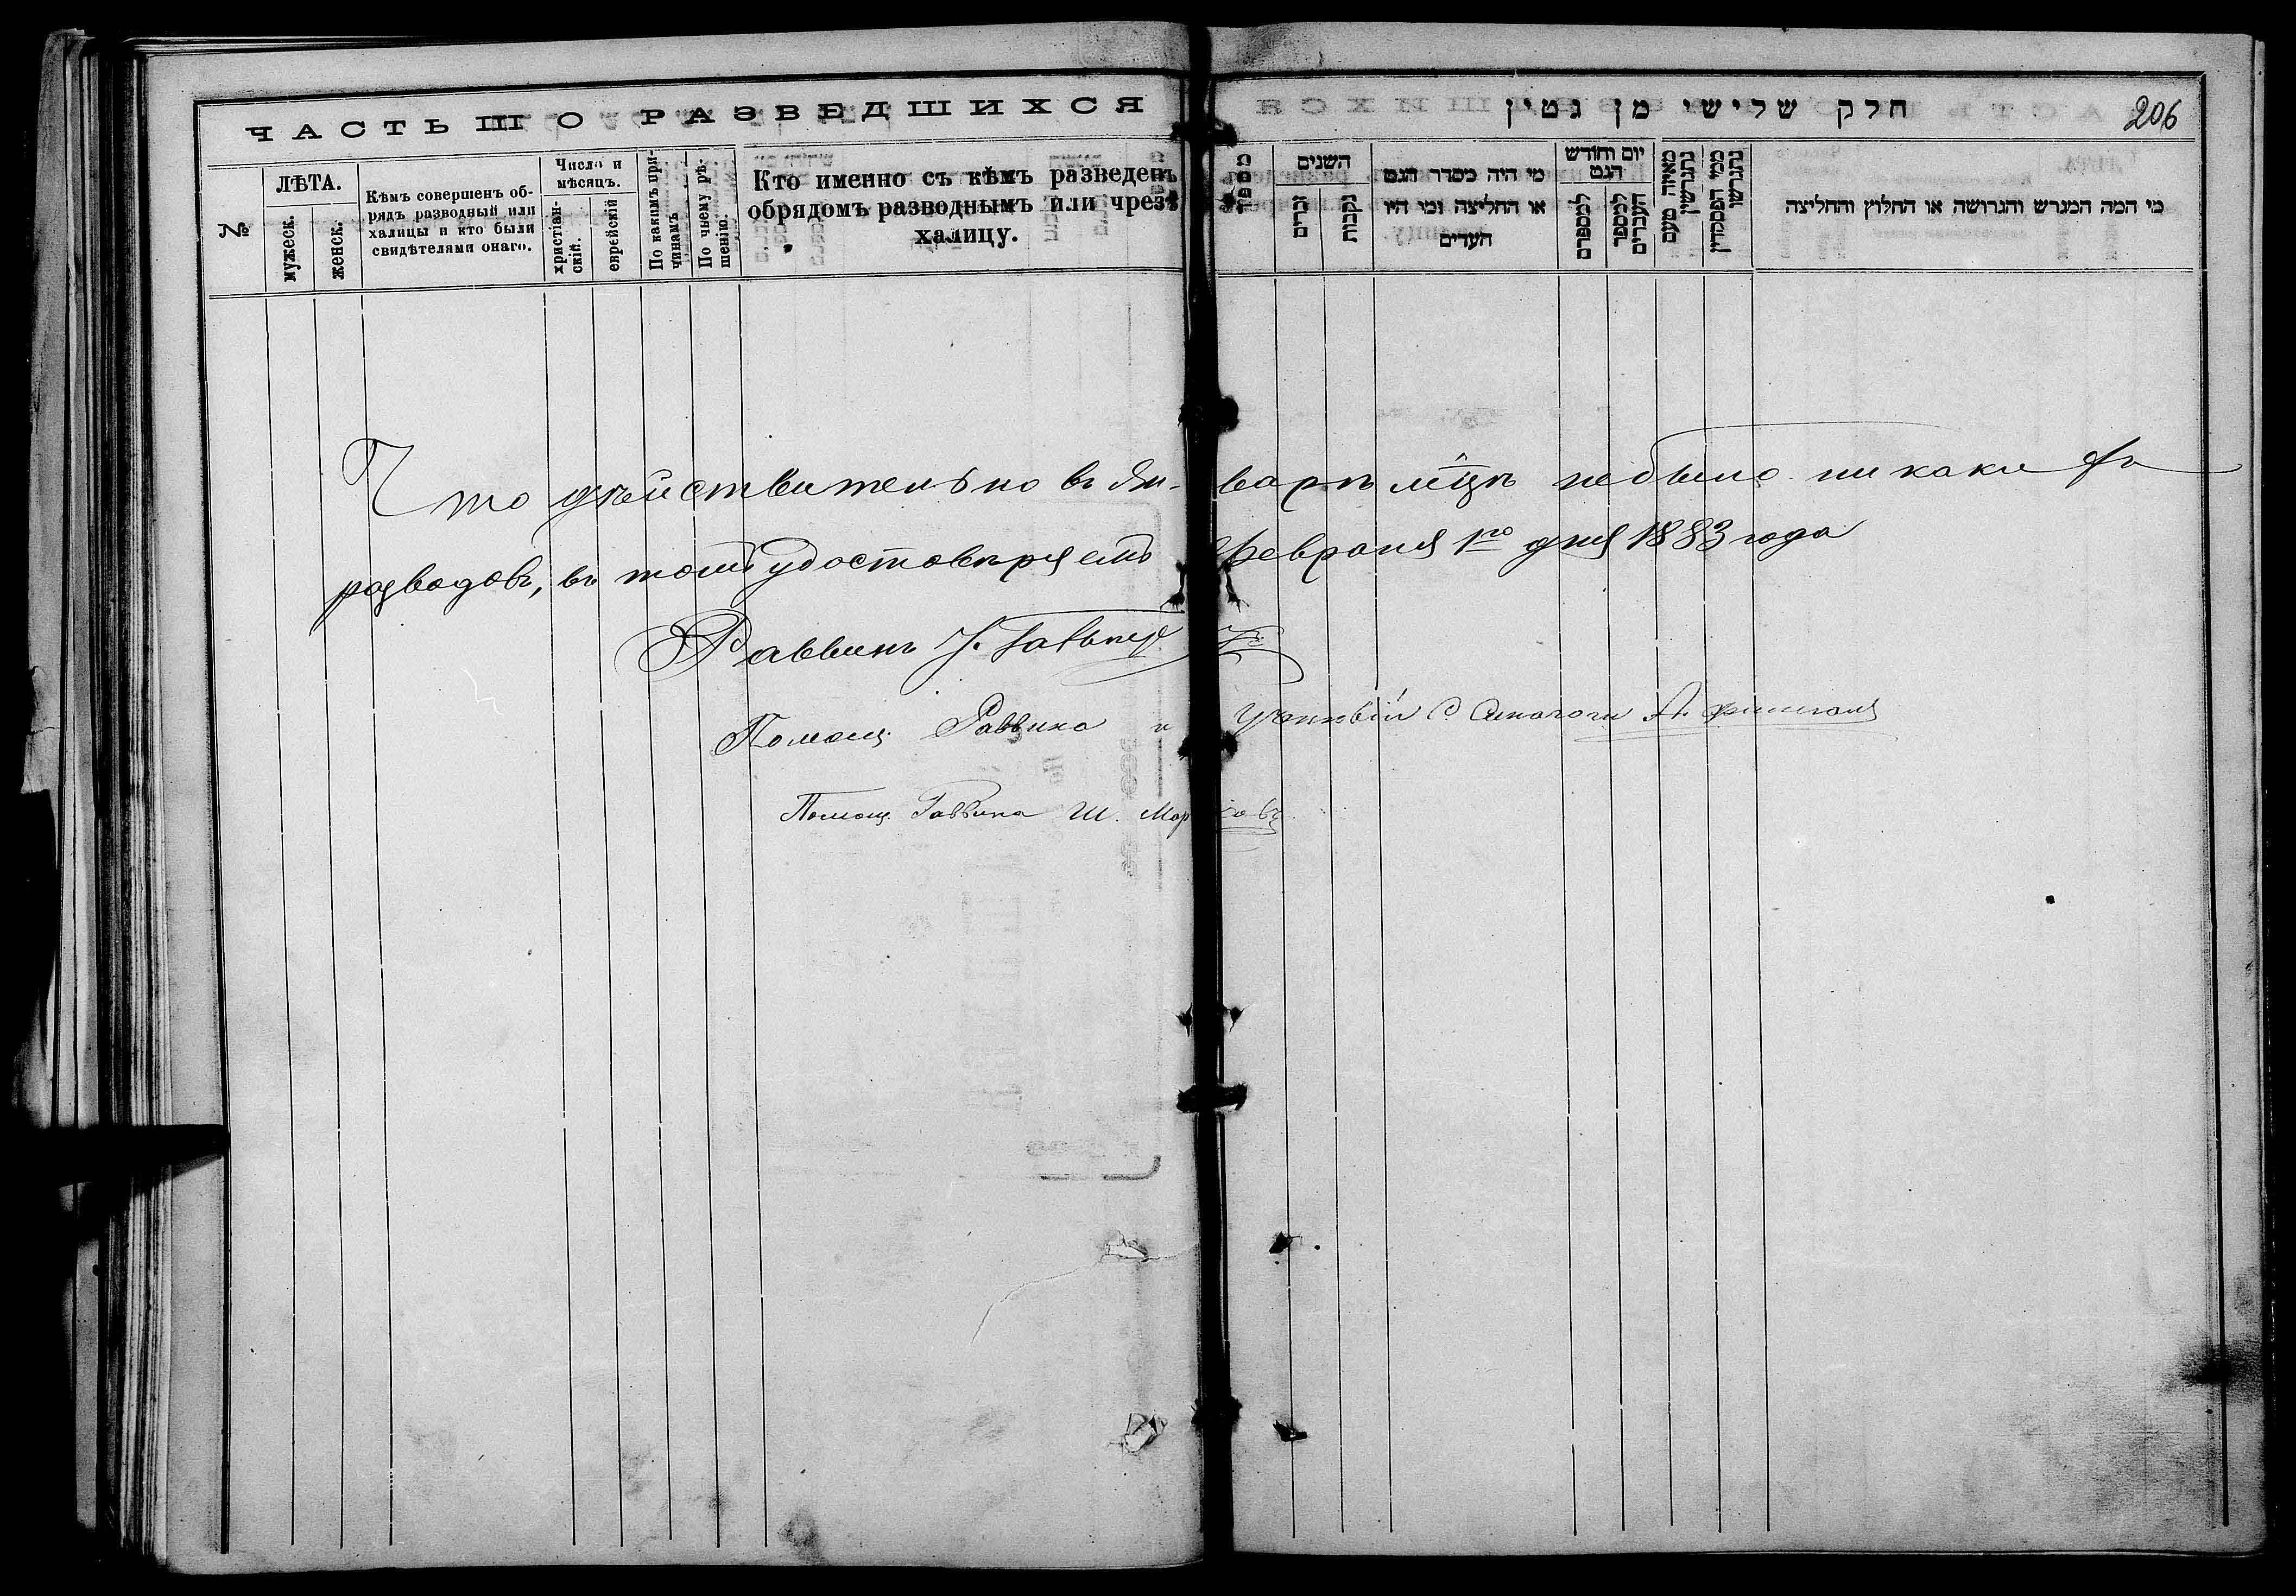 ЧАСТЬ III О РАЗВЕДШИХСЯ
№
ЛѢТА.
мужеск.
женск.
Кѣмъ совершенъ об-
рядъ разводный или
халицы и кто были
свидѣтелями онаго.
Число и
мѣсяцъ.
христіан-
скій.
еврейскій
По какимъ при-
чинамъ
По чьему рѣ-
шенію.
Кто именно съ кѣмъ разведенъ
обрядомъ разводнымъ или чрезъ
халицу.
חלק שלישי מן גטין
206
השנים
זכרים
נקבות
מי היה מסדר הגט
או החליצה ומי היו
העדים
יום וחודש
הגט
למספרם
למספר
העברים
מאיזה טעם
נתגרשו
ממי
נתגרשו
מי המה המגרש והגרושה או החלוץ והחליצה
Что дѣйствительно въ Ян-варѣ м̂цѣ небыло никакихъ
разводовъ, въ томъ удостовѣряемъ Февраля 1го дня 1883 года
Раввинъ
Помощ. Раввина и Ученный С Синагоги А.
Помощ. Раввина Ш.